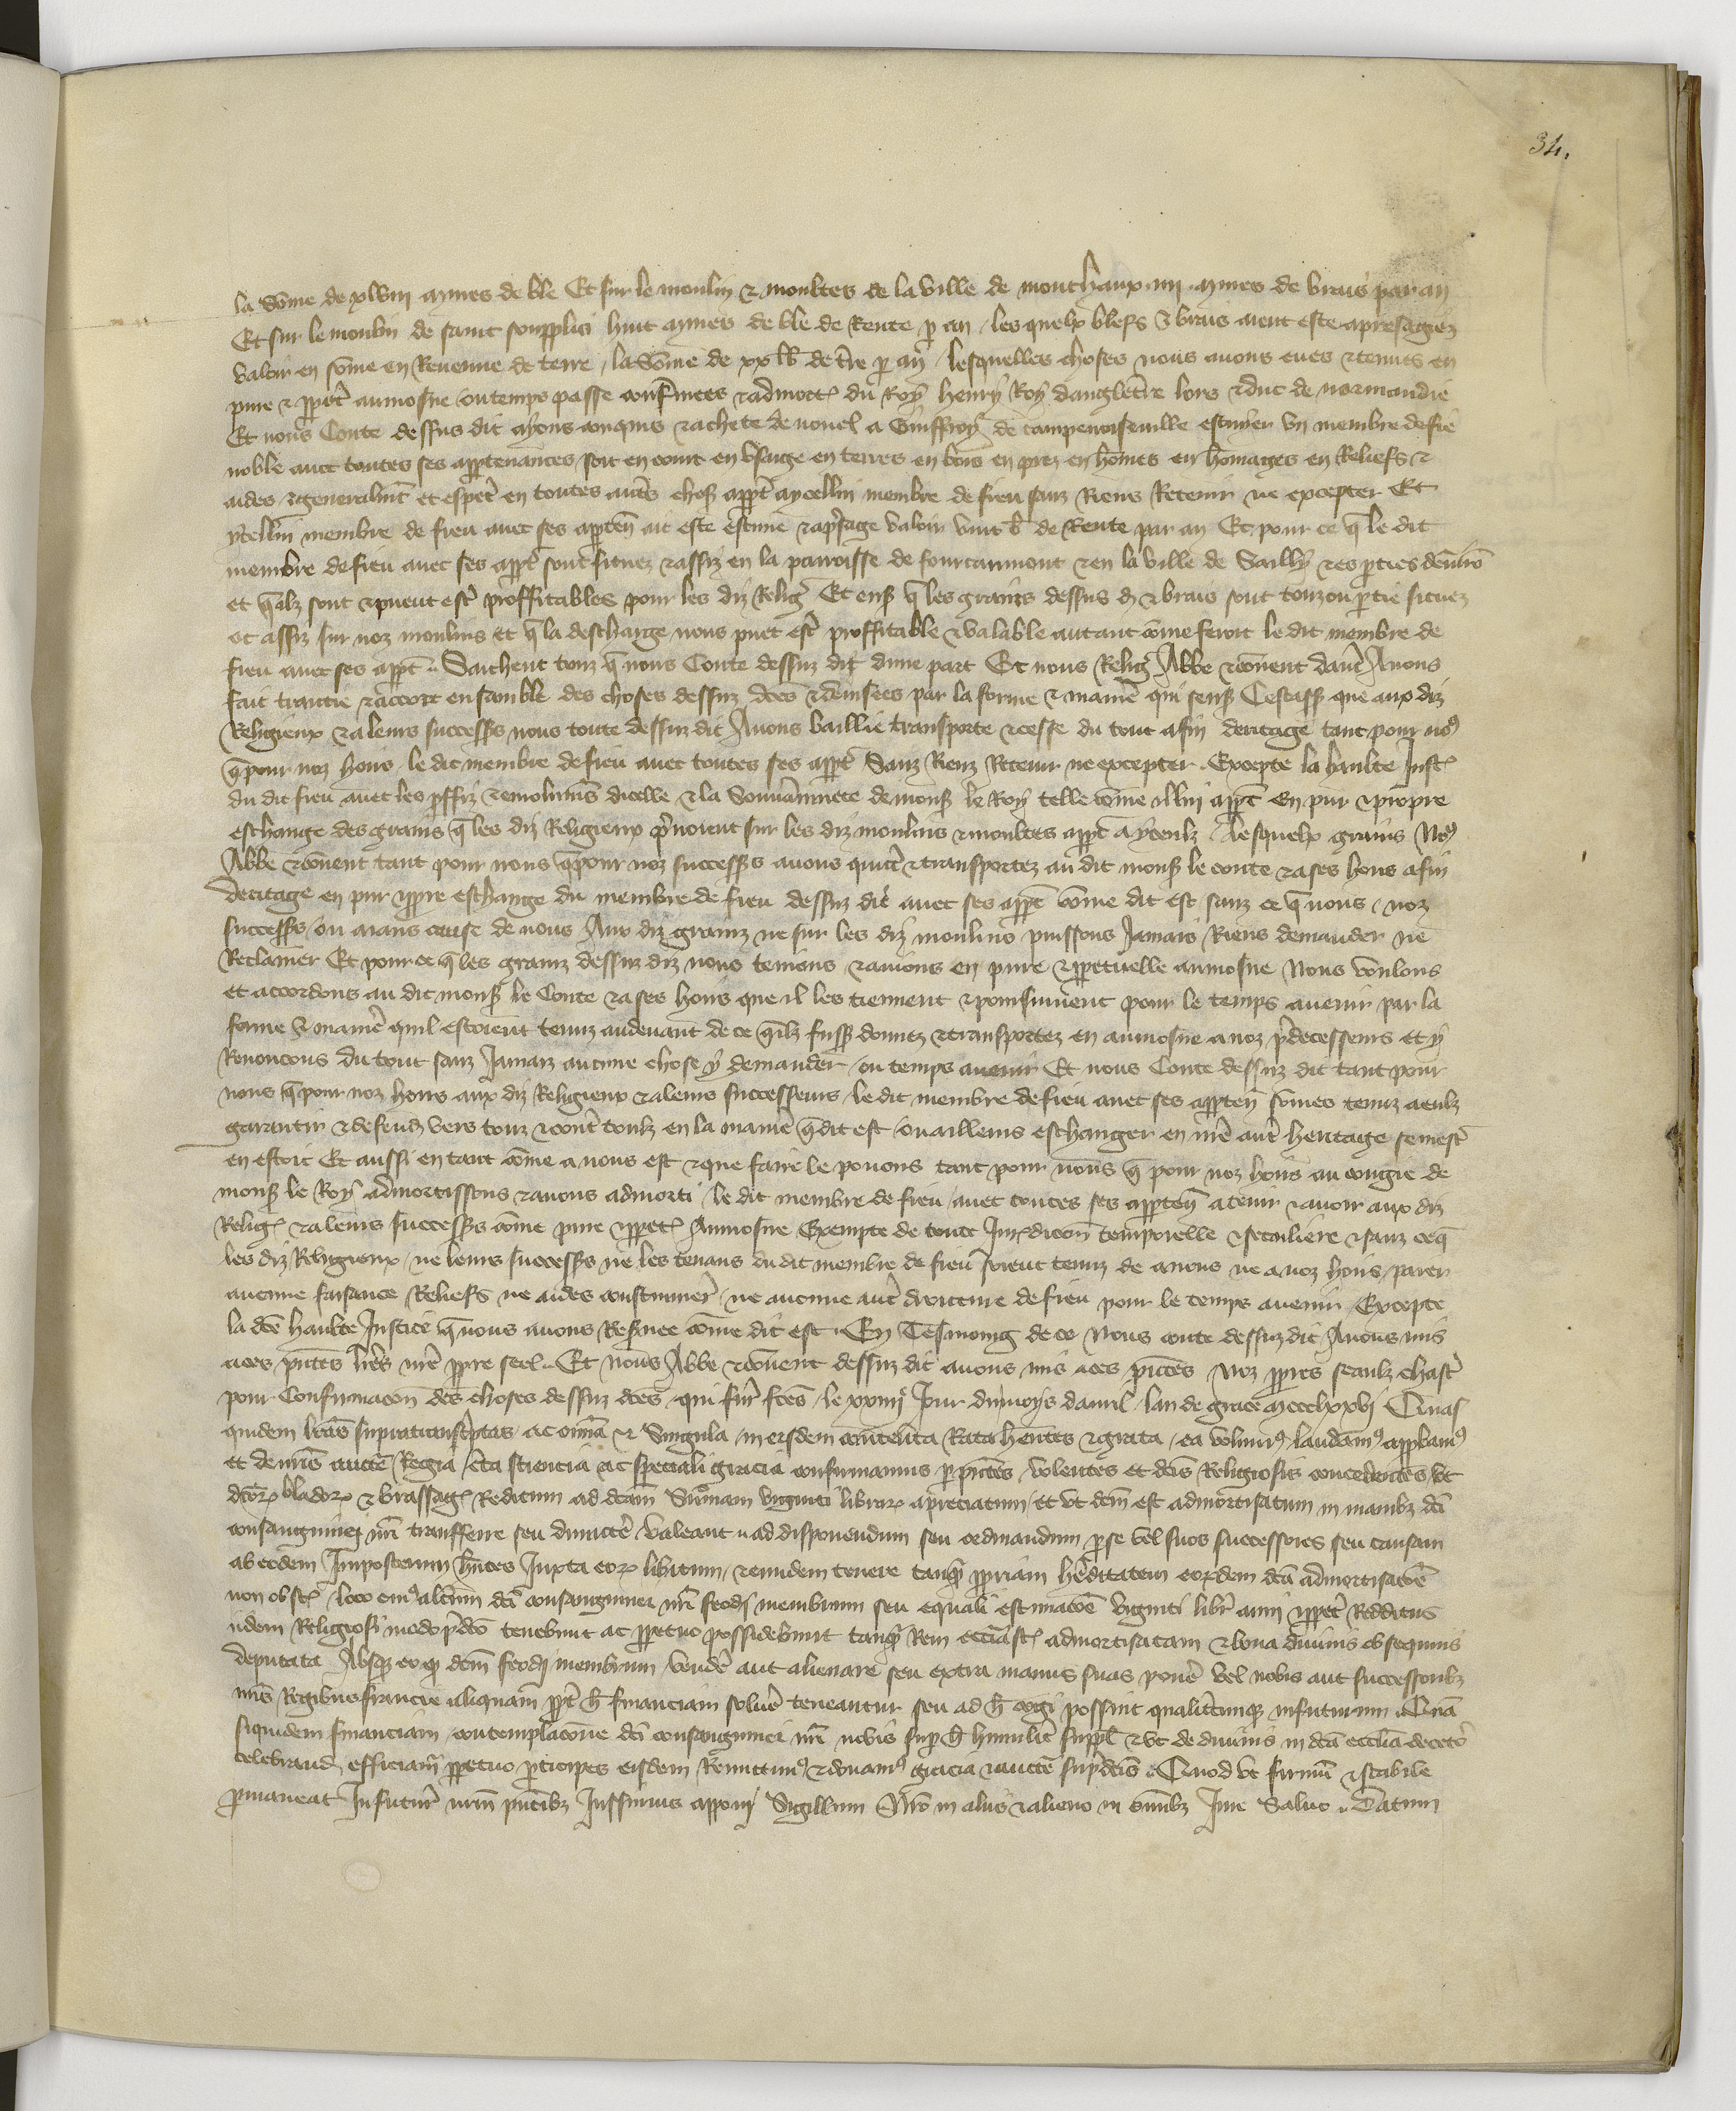 34.
la Som̃e de xlviii aymes de ble Et sur le moulin & moultes de la ville de monthaux iiii aymes de brais par an
Et sur le moulin de saint soupplici huit aymes de ble de Rente p an les quelx blefs & brais aient este apresagiez
valoir en som̃e en Reuenue de terre la Som̃e de xx lb de t̃re p an lesquelles choses nous auons eues & tenues en
pure & ppet̃ aumosne ou temps passe confmees & admort du Roy henry Roy danglet̃re lors & duc de normandie
Et nous Conte dessus dit ayons conquis & achete de nouel a Guiffroy de campenoiseuille escuier vn membre de fie
noble auec toutes ses apptenances soit en court en vsage en terres en bois en prez en hom̃es en hom̃ages en Reliefs &
aides & generalmẽt et espet̃ en toutes aut̃s chos appt̃ a ycellui membre de fieu sanz Riens Retenir ne excepter Et
ycellui membre de fieu auec ses apptẽn ait este estime & apsage valoir vint lb de Rente par an Et pour ce q̃ le dit
membre de fieu auec ses appt̃ sont situez & assiz en la parroisse de foucarmont & en la ville de Sailly & es pties denuirõ
et q̃lz sont & peuent est̃ proffitables pour les diz Relig̃ Et ens q̃ les grains dessus d & brais sont touz ou ptie situez
et assiz sur noz moulins et q̃ la descharge nous puet est̃ proffitable & valable autant cõme seroit le dit membre de
fieu auec ses appt̃ Saichent touz q̃ nous Conte dessuz dit dune part Et nous Relig̃ Abbe & cõuent daut̃ Auons
fait traictie & accort ensamble des choses dessuz dc̃es & deuisees par la forme & manie᷑ qui sens Cestass que aux diz
Religieux & a leurs success̃s nous conte dessuz dit Auons baillie transporte & cesse du tout afin deritage tant pour nos
q̃ pour noz hoirs le dit membre de fieu auec toutes ses appt̃ Sanz Rienz Retenir ne excepter Excepte la haulte Just
du dit fieu auec les pffiz & emolumẽs dicelle & la Souuerainnete de mons̃ le Roy telle cõme a lui appt̃ En pur & propre
eschange des grains q̃ les diz Religieux p̃noient sur les diz moulins & moultes appt̃ a yceulz Lesquelx grains Nos
Abbe & cõuent tant pour nous q̃ pour noz success̃s auons quitt̃ & transportez au dit mons̃ le conte & a ses hoirs afin
deritage en pur & ppre eschange du membre de fieu dessuz dit auec ses appt̃ cõme dit est sanz ce q̃ nous noz
success̃s ou aians cause de nous Aux diz grainz ne sur les diz moulins puissons Jamais Riens demander ne
Reclamer Et pour ce q̃ les grainz dessuz diz nous tenions & auions en pure & ppetuelle aumosne Nous voulons
et accordons au dit mons̃ le Conte & a ses hoirs que il les tiennent & poursuiuent pour le temps auenir par la
forme & manie᷑ quil estoient tenuz audeuant de ce q̃lz fuss̃ donnez & transportez en aumosne a noz p̃decesseurs et y
Renoncons du tout sanz Jamaiz aucune chose y demander ou temps auenir Et nous Conte dessuz dit tant pour
nous q̃ pour noz hoirs aux diz Religieux & a leurs successeurs le dit membre de fieu auec ses apptẽn som̃es tenuz a eulz
garantir & defend vers touz & cont̃ toulz en la manie᷑ q̃ dit est ou ailleurs eschanger en nr̃e aut̃ heritage se mest̃
en estoit Et aussi en tant cõme a nous est & que faire le pouons tant pour nous q̃ pour noz hoirs au congie de
mons̃ le Roy admortissons & auons admorti le dit membre de fieu auec toutes ses apptẽn a tenir & auoir aux diz
Relig̃ & a leurs success̃s cõme pure & ppet̃ Aumosne Exempte de toute Jurdicõn temporelle & seculiere & sanz ce q̃
les diz Religieux ne leurs success̃s ne les tenans du dit membre de fieu soient tenuz de a nous ne a noz hoirs paier
aucune faisance Reliefs ne aides coustumier᷑ ne aucune aut̃ droicture de fieu pour le temps auenir Excepte
la dc̃e haulte Justice q̃ nous auons Res̃uee cõme dit est En Tesmoing de ce Nous conte dessuz dit Auons mis
a ces p̃ntes lr̃es nr̃e ppre seel Et nous Abbe & cõuent dessuz dit auons mis a ces p̃ntes Noz ppres seaulz chas̃t
pour Confirmacõn des choses dessuz dc̃es qui fur̃ fc̃es le xxiiij Jour du moys dauril lan de grace mccclxxvj Quas
quidem lr̃as supratransc̃ptas ac om̃ia & Singula in eisdem contenta Rata hẽntes & grata ea volumus laudamus appbamus
et de nr̃is aucte᷑ Regia c̃ta sciencia ac speciali gracia confirmamus p p̃ntes volentes et dc̃is Religiosis concedentes vt
dc̃or blador & brassag̃ Reditum ad dc̃am Sum̃am viginti librar apreciatum et vt dc̃m est admortisatum in manibz dc̃i
consanguinei nr̃i transferre seu dimitt̃e valeant ad disponendum seu ordinandum p se vel suos successores seu causam
ab eodem Imposterum hñtes Juxta eor libitum & eumdem tenere tanq̃ ppriam he᷑ditatem eordem dc̃a admortisacõe
non obst̃ loco cui᷒ alterum dc̃i consanguinei nr̃i feodj membrum seu equali estimacõe viginti libr̃ annj & ppet̃ Redditus
iidem Religiosi modo p̃dc̃o tenebunt ac ppetuo possidebunt tanq̃ Rem ecclĩast̃ admortisatam & bona diuinis obsequiis
deputata Absq eo q dc̃m feodj membrum vende᷑ aut alienare seu extra manus suas pone᷑ vel nobis aut successoribz
nr̃is Regibus francie aliquam ppt̃ h̃ financiam solue᷑ teneantur seu ad h̃ cogi possint qualit̃cumq infuturum Quã
siquidem financiam contemplacõne dc̃i consanguinei nr̃i nobis sup h̃ humilit̃ suppl & vt de diuinis in dc̃a eccl̃ia de cet̃o
celebrand efficiam᷑ ppetuo pticipes eisdem Remittim᷒ & donam᷒ gracia & aucte᷑ sup̃dc̃is Quod vt firmũ & stabile
pmaneat Infutur̃ nr̃m p̃ntibz Jussimus apponj Sigillum Nr̃o in aliis & alieno in om̃ibz Jure Saluo Datum